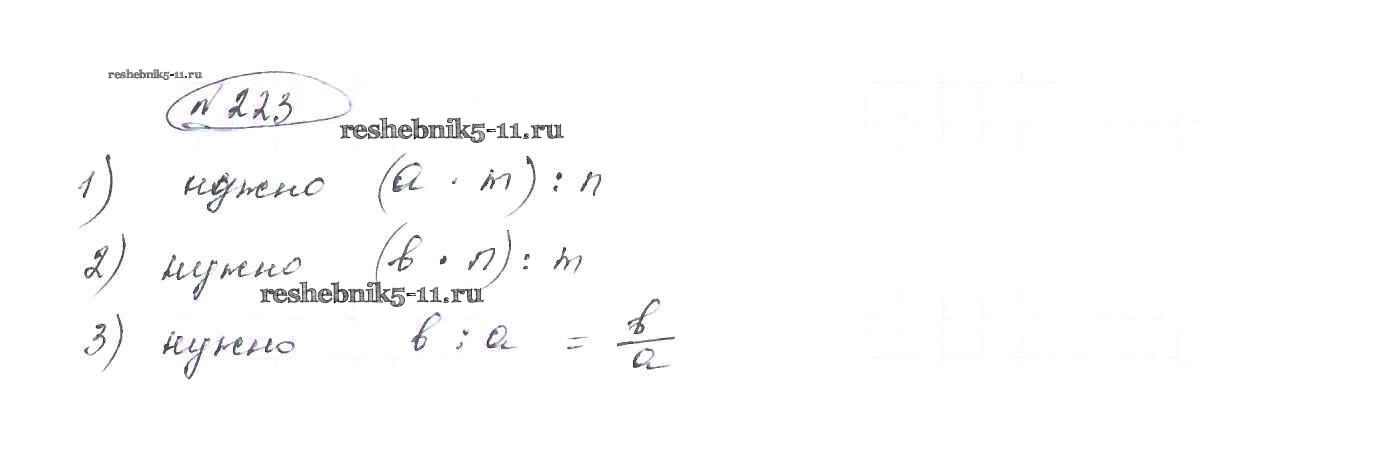 reshebnik5-11.ru
№ 223
reshebnik5-11.ru
1) нужно (a · m) : n
2) нужно (b · n) : m
reshebnik5-11.ru
3) нужно b : a = b/a